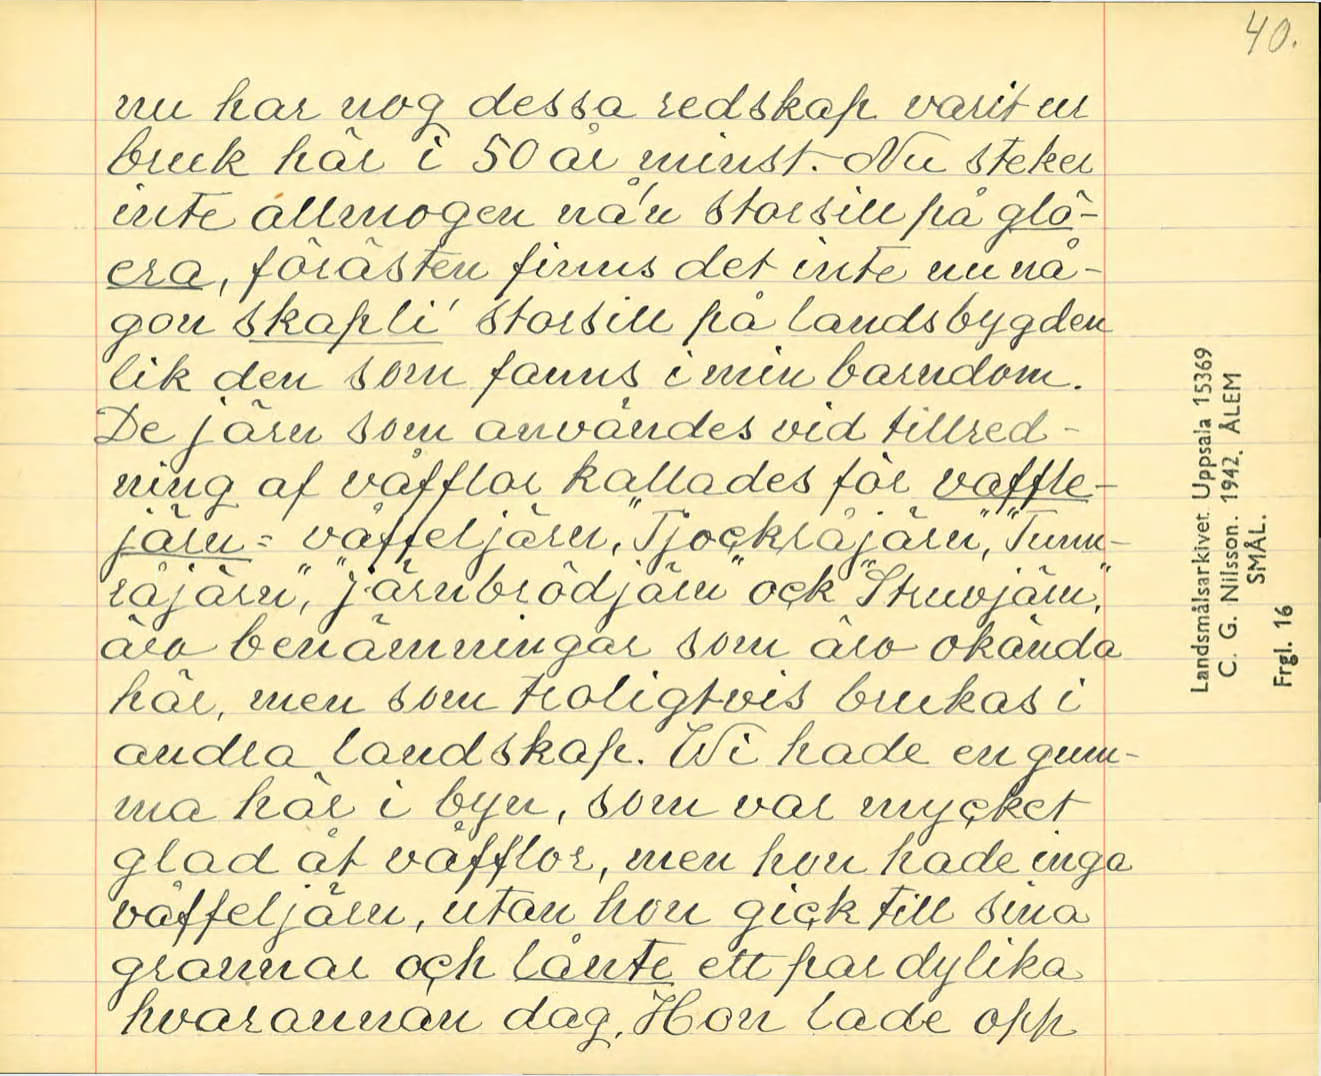 40.
nu har nog dessa redskap varit ur
bruk här i 50 år minst. Nu steker
inte allmogen nå'n storsill på glö-
era, förästen finns det inte nu nå-
gon skapli' storsill på landsbygden
lik den som fanns i min barndom.
De järn som användes vid tillred-
ning af våfflor kallades för vaffle-
järn = våffeljärn, "Tjockråjärn", "Tunn-
råjärn", "järnbrödjärn" ock "Struvjärn",
äro benämningar som äro okända
här, men som troligtvis brukas i
andra landskap. Wi hade en gum-
ma här i byn, som var mycket
glad åt våfflor, men hon hade inga
våffeljärn, utan hon gick till sina
grannar och lånte ett par dylika
hvarannan dag. Hon lade opp
Landsmålsarkivet. Uppsala 15369
C. G. Nilsson. 1942. ÅLEM
SMÅL.
Frgl. 16